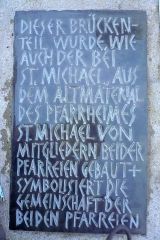 DIESER BRÜCKEN-
TEIL WURDE WIE
AUCH DER BEI
ST. MICHAEL AUS
DEM ALTMATERIAL
DES PFARRHEIMES
ST. MICHAEL VON
MITGLIEDERN BEIDER
PFARREIEN GEBAUT +
SYMBOLISIERT DIE
GEMEINSCHAFT DER
BEIDEN PFARREIEN